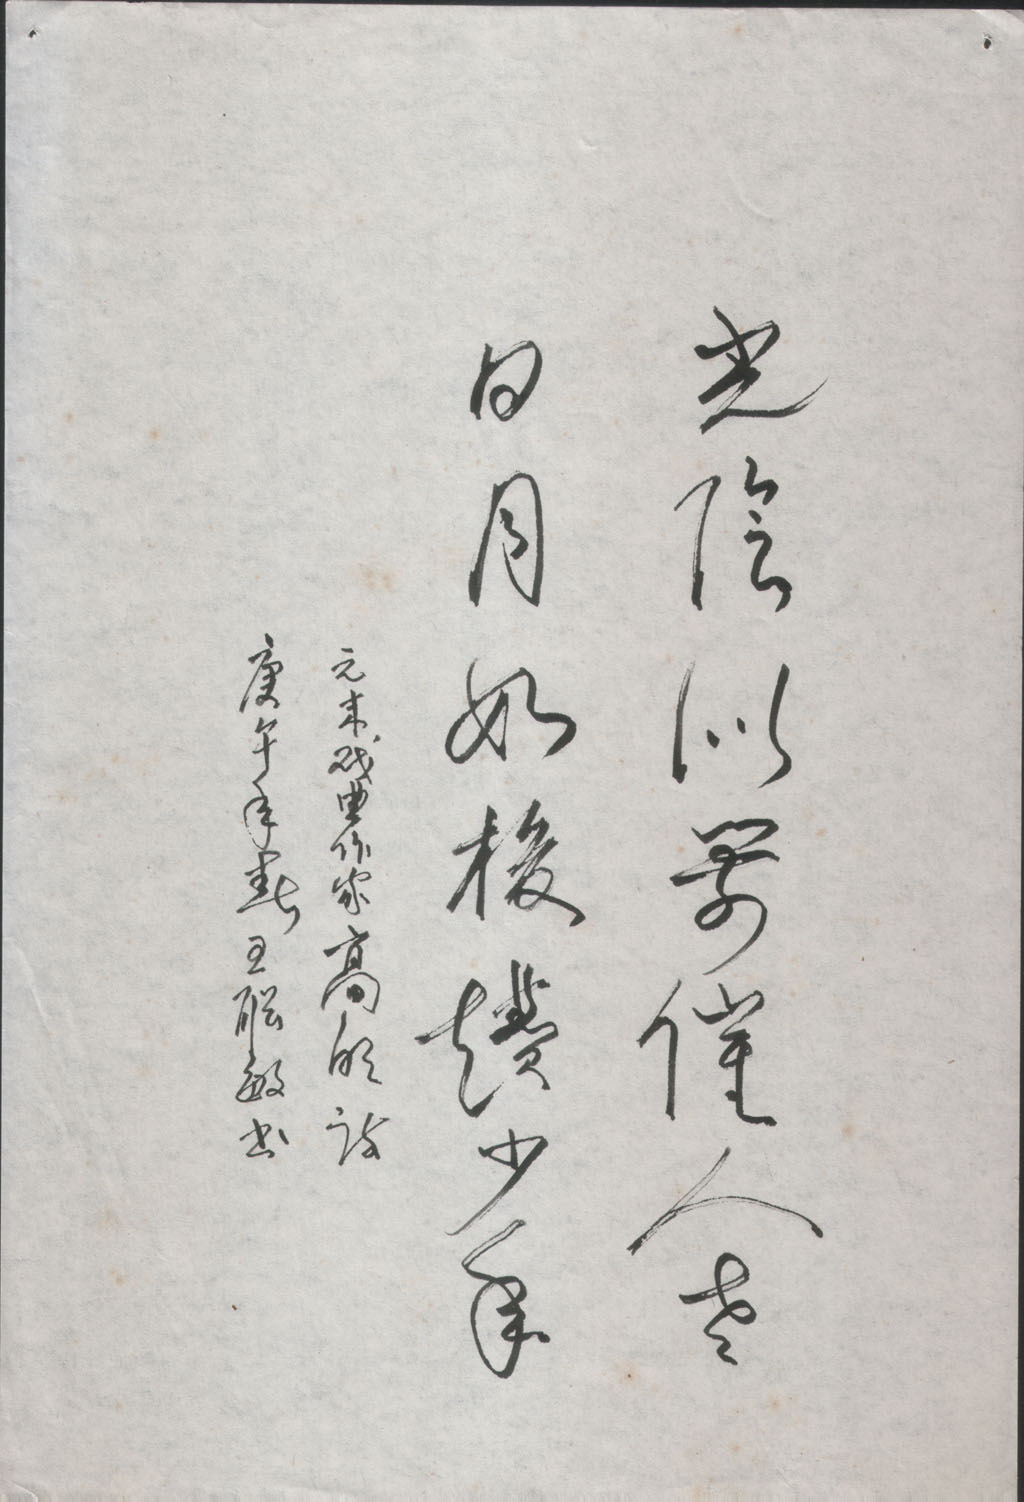 光陰似箭催人老
日月如梭趲少年
元末戏曲作家高明詩
庚午年春王聪敏书